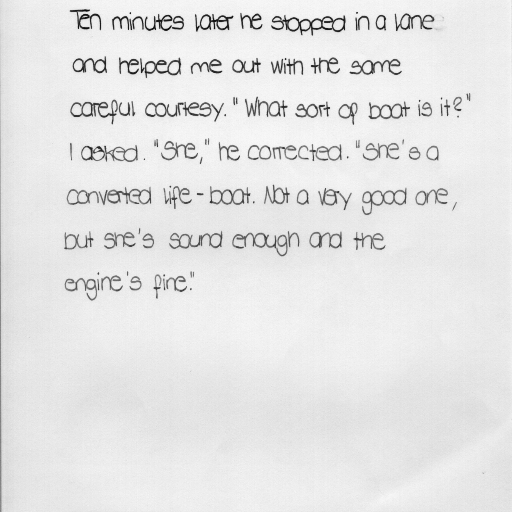 Ten minutes later he stopped in a lane
and helped me out with the same
careful courtesy. "What sort of boat is it?"
I asked. "She," he corrected. "She's a
converted life-boat. Not a very good one,
but she's sound enough and the
engine's fine."